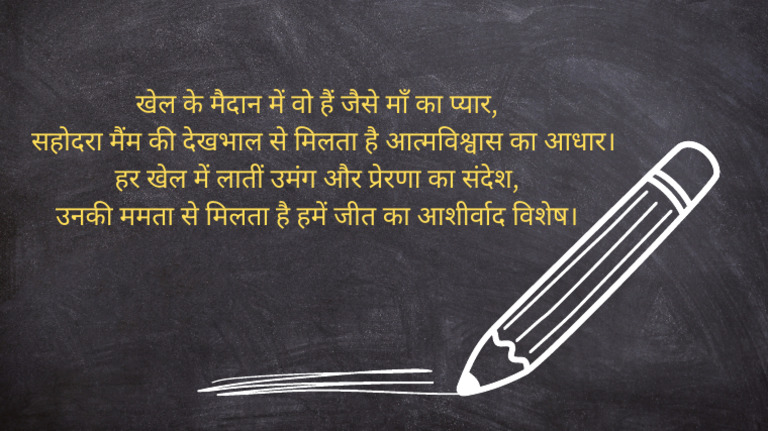 खेल के मैदान में वो हैं जैसे माँ का प्यार,
सहोदरा मैंम की देखभाल से मिलता है आत्मविश्वास का आधार।
हर खेल में लातीं उमंग और प्रेरणा का संदेश,
उनकी ममता से मिलता है हमें जीत का आशीर्वाद विशेष।